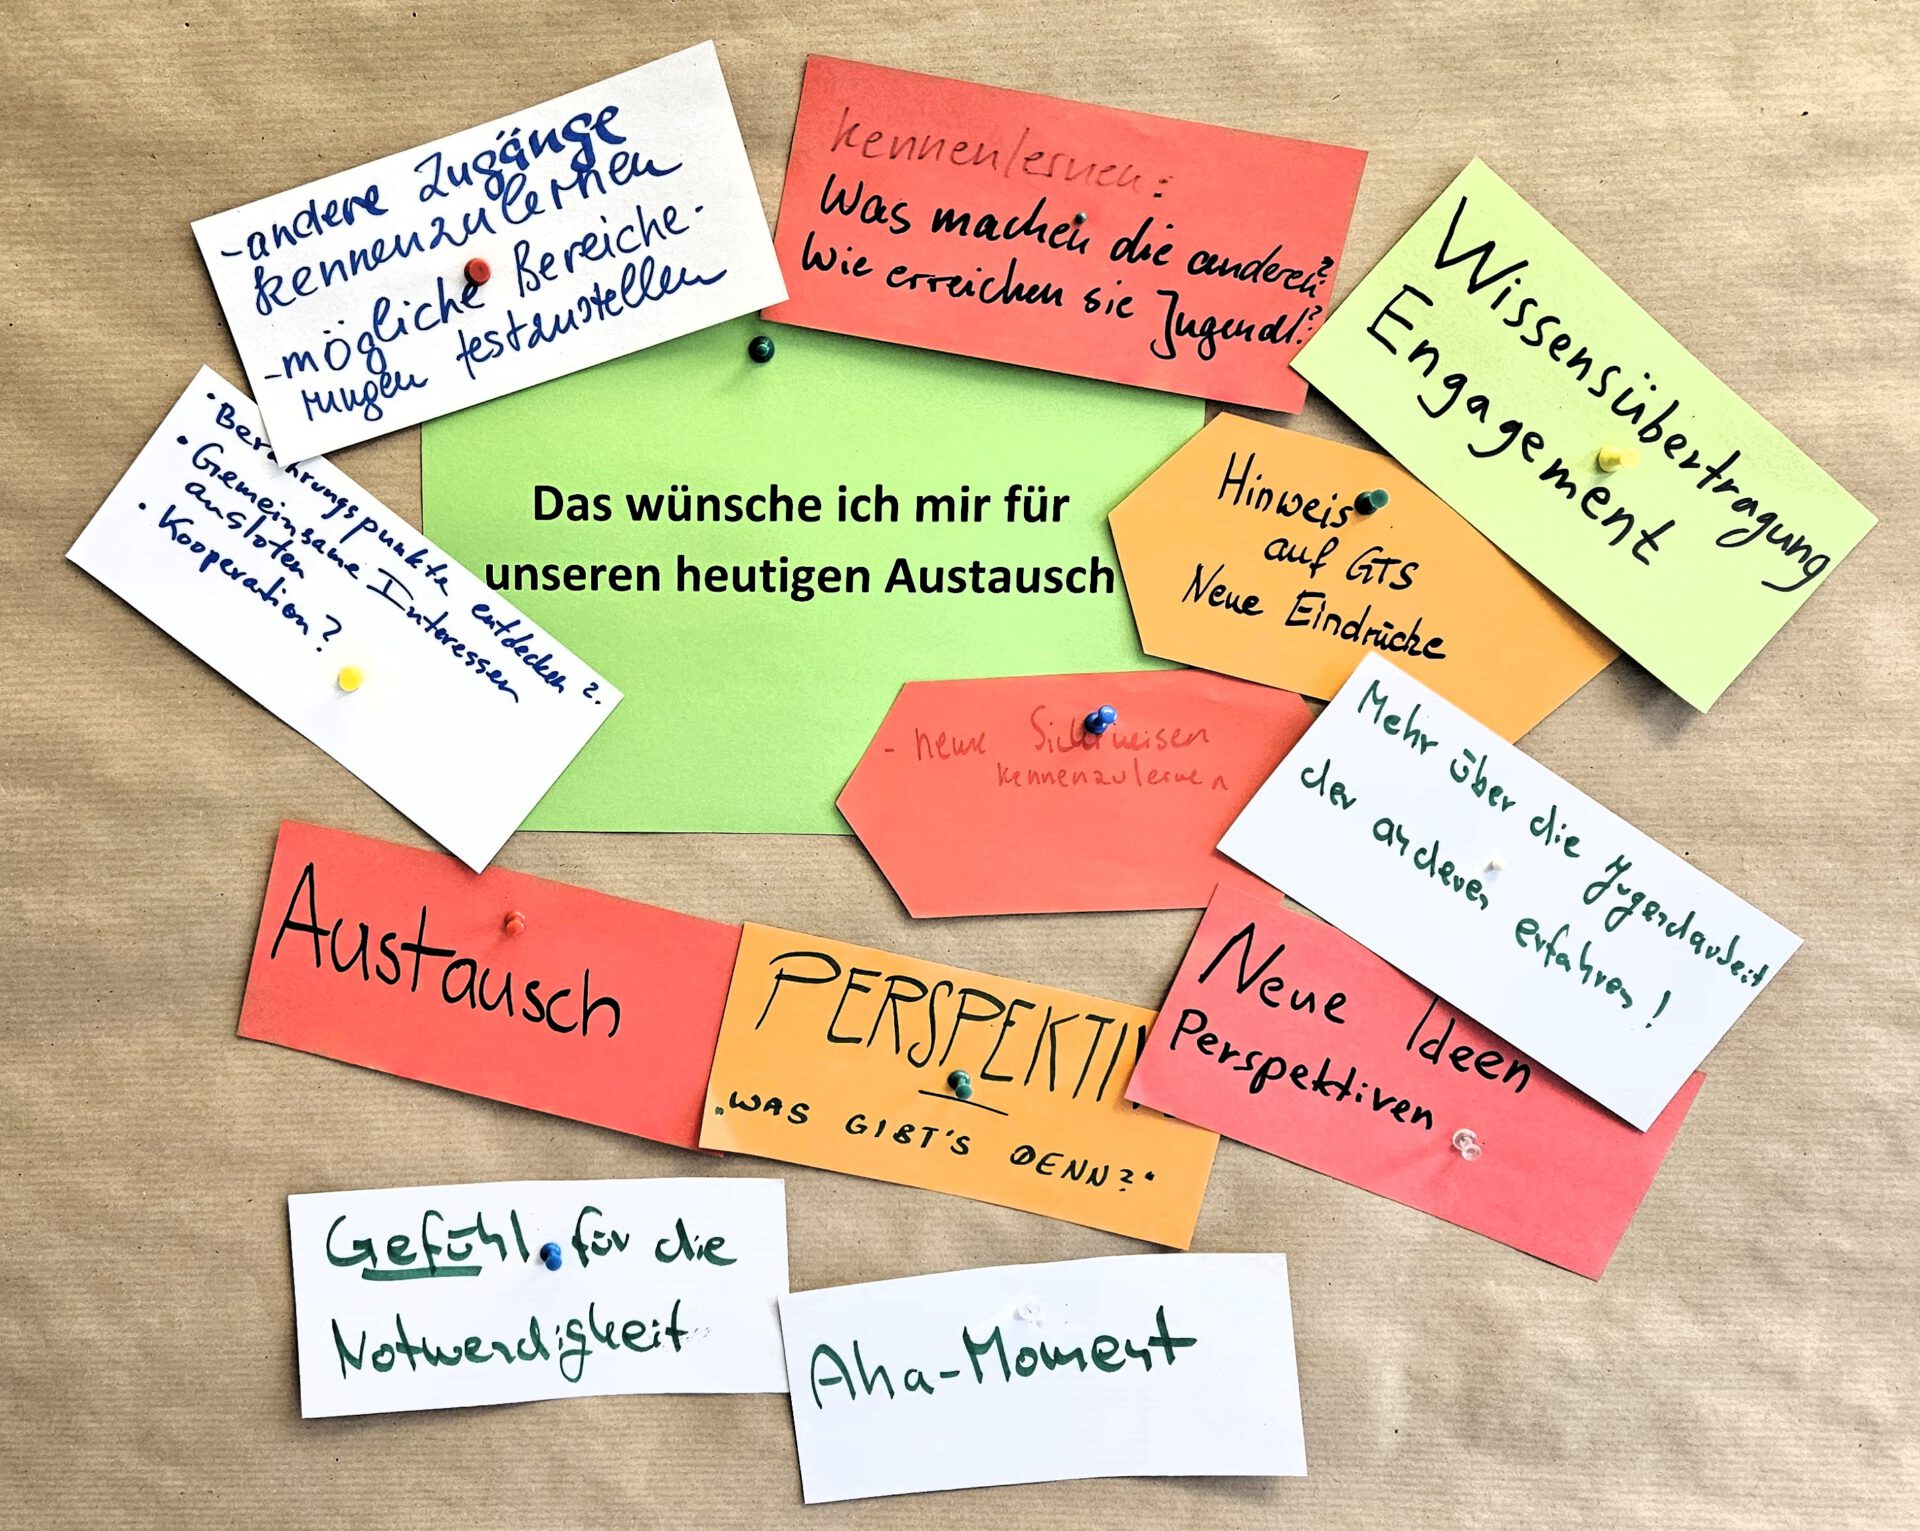 - andere Zugänge
kennenzulernen
- mögliche Bereiche-
rungen festzustellen
kennenlernen:
Was machen die anderen?
Wie erreichen sie Jugendl.?
Wissensübertragung
Engagement
• Berührungspunkte entdecken?
• Gemeinsame Interessen
ausloten
• Kooperation?
Das wünsche ich mir für
unseren heutigen Austausch
Hinweis
auf GTS
Neue Eindrücke
- neue Sichtweisen
kennenzulernen
Mehr über die Jugendarbeit
der anderen erfahren!
Austausch
PERSPEKTI
„WAS GIBT'S DENN?"
Neue Ideen
Perspektiven
Gefühl für die
Notwendigkeit
Aha-Moment